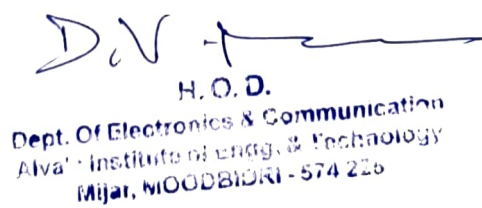 D.V
H. O. D.
Dept. Of Electronics & Communication
Alva' Institute of Engg. & Technology
Mijar, MOODBIDRI - 574 225